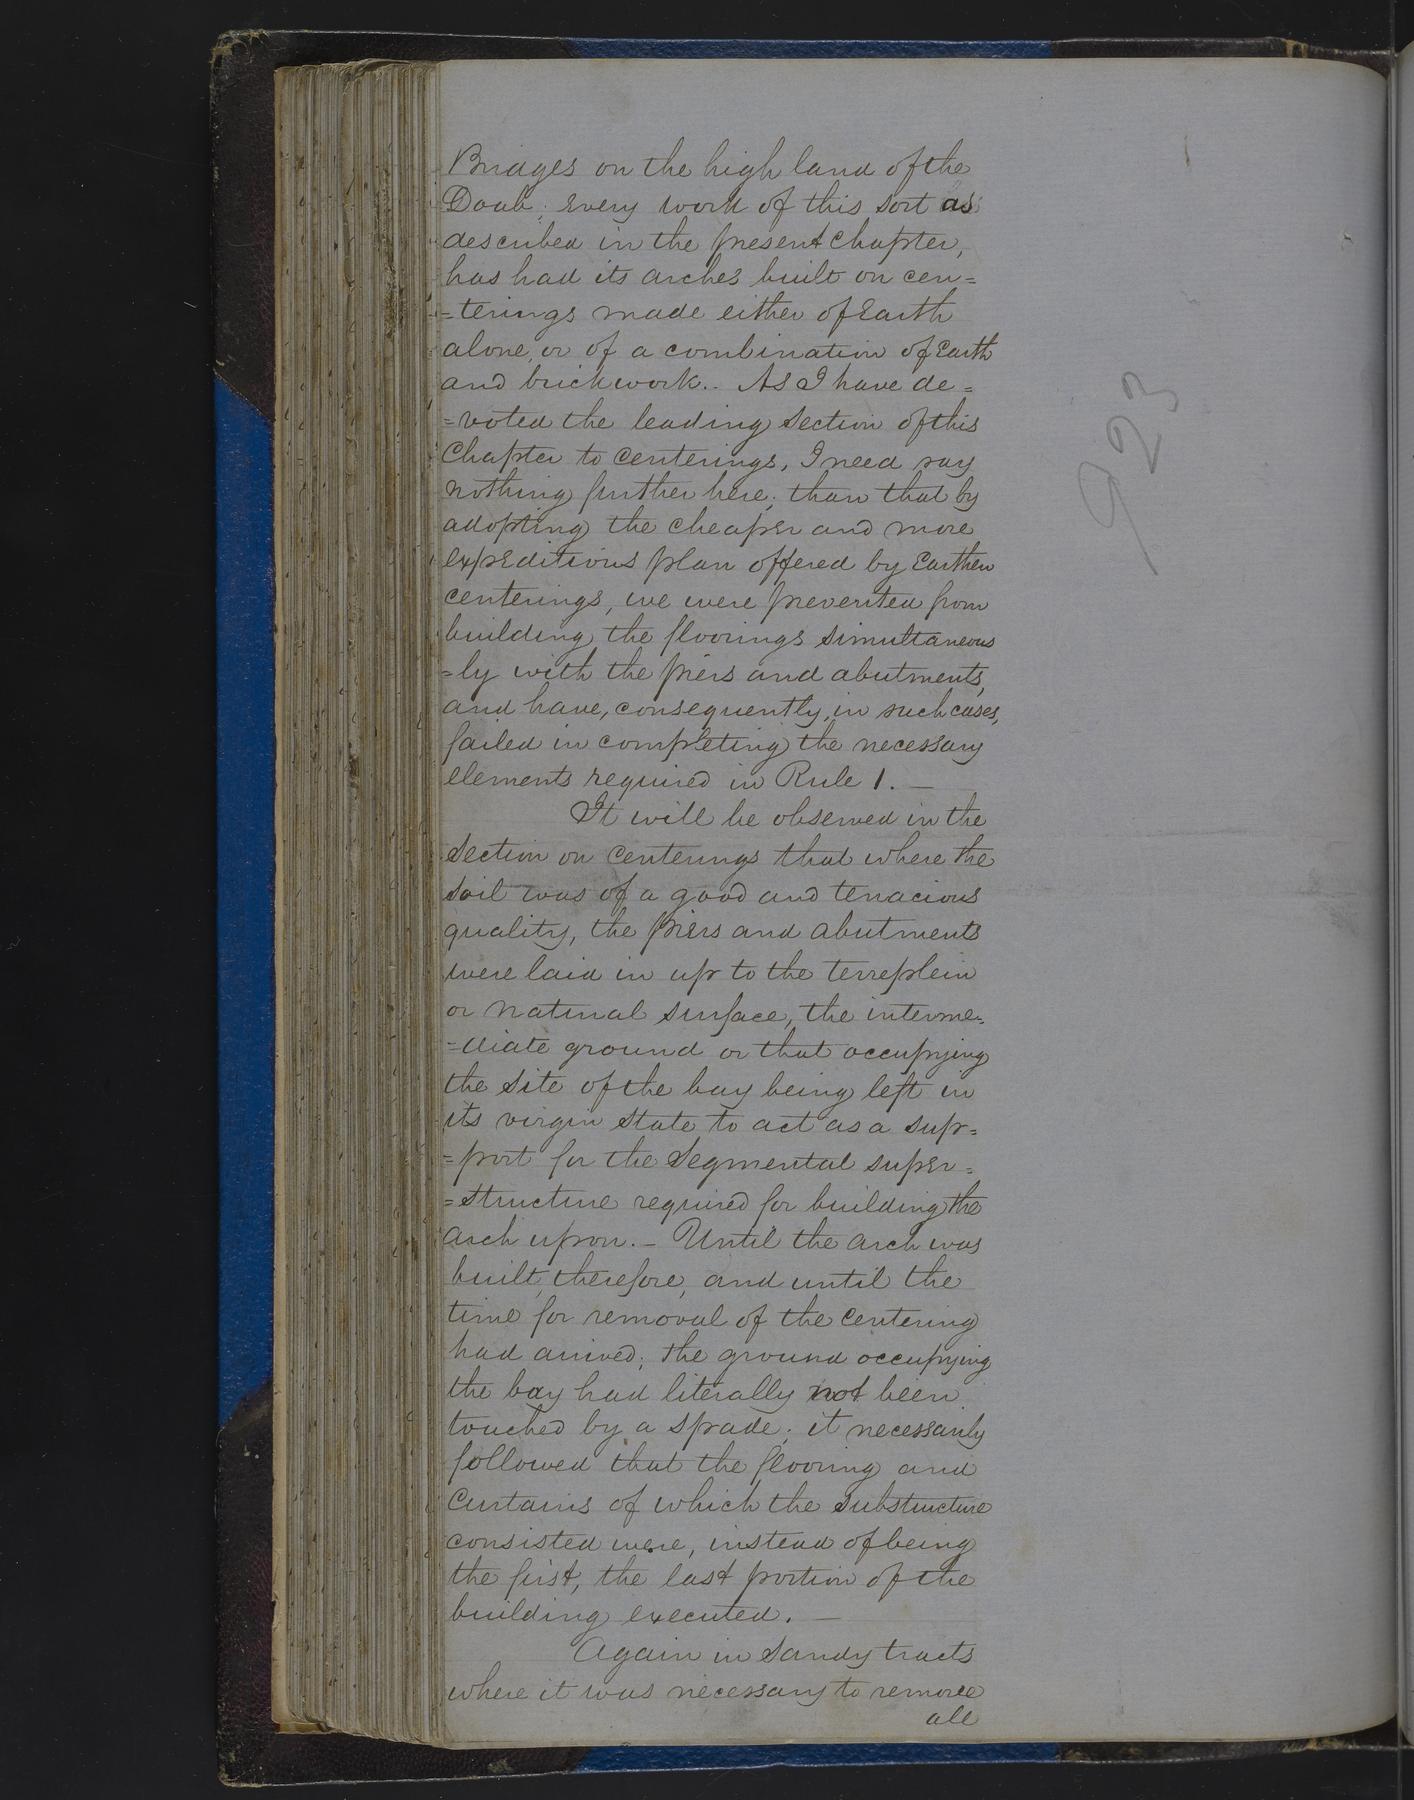 Bridges on the high land of the
Doab; Every work of this sort as
described in the present Chapter,
has had its arches built on cen=
=terings made either of Earth
alone, or of a combination of Earth
and brickwork.. As I have de=
=voted the leading Section of this
Chapter to Centerings, I need say
nothing further here; than that by
adopting the cheaper and more
expeditious plan offered by Earthen
centerings, we were prevented from
building the floorings simultaneous
=ly with the piers and abutments,
and have, consequently, in such cases,
failed in completing the necessary
elements required in Rule 1. —
It will be observed in the
Section on Centerings that where the
soil was of a good and tenacious
quality, the piers and abutments
were laid in up to the terreplein
or natural surface, the interme=
=diate ground or that occupying
the site of the bay being left in
its virgin state to act as a sup=
=port for the Segmental super=
=structure required for building the
arch upon. — Until the arch was
built, therefore, and until the
time for removal of the Centering
had arrived; the ground occupying
the bay had literally not been
touched by a spade; it necessarily
followed that the flooring and
Curtains of which the substructure
consisted were, instead of being
the first, the last portion of the
building executed. —
Again in Sandy tracts
where it was necessary to remove
all
923